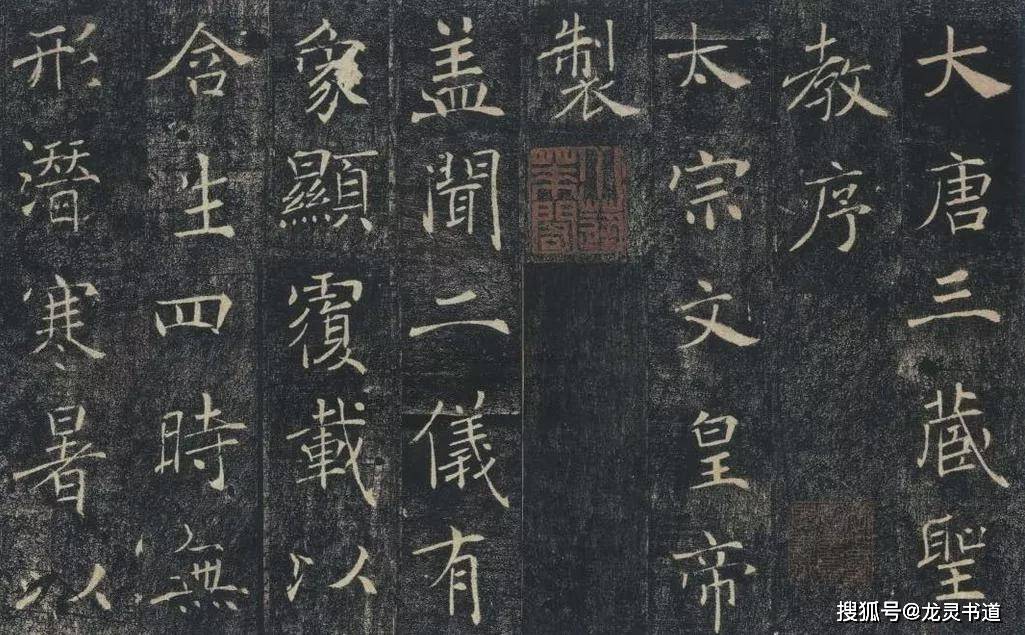 大唐三蔵聖
教序
太宗文皇帝
製
盖聞二儀有
象顯覆載以
含生四時無
形潛寒暑以
搜狐号@龙灵书道